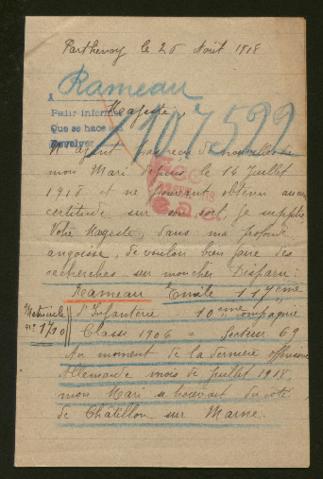 Parthenay le 26 Août 1918
Rameau
A
Majesté
Pedir informes
Que se hace en
Devolver
210 7599
N'ayant pas reçu de nouvelles de
mon Mari depuis le 14 Juillet
1918 et ne pouvant obtenir aucune
certitude sur son sort, je supplie
Votre Majesté, dans ma profonde
angoisse, de vouloir bien faire des
recherches sur mon cher Disparu:
Rameau Emile 117ème
Matricule d'Infanterie 10ème Compagnie
n° 1790 Classe 1906 - Secteur 69
Au moment de la dernière offensive
Allemande mois de Juillet 1918,
mon Mari se trouvait du côté
de Châtillon sur Marne.